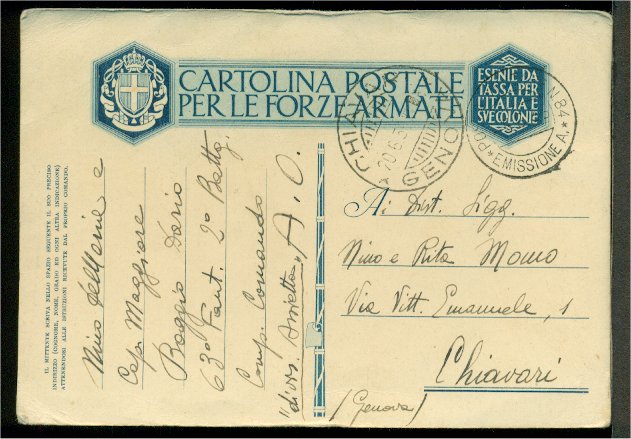 CARTOLINA POSTALE
PER LE FORZE ARMATE
ESENTE DA
TASSA PER
L'ITALIA E
SVE COLONIE
CHIAVARI
20.6.3
GENOVA
N 84
EMISSIONE A.
IL MITTENTE SCRIVA NELLO SPAZIO SEGUENTE IL SUO PRECISO
INDIRIZZO (COGNOME, NOME, GRADO ED OGNI ALTRA INDICAZIONE)
ATTENENDOSI ALLE ISTRUZIONI RICEVUTE DAL PROPRIO COMANDO.
Nino e
Cap. Maggiore
Baggio Dario
63° Fant. 2° Battg.
Comp. Comando
"divis. Assietta" A. O.
Ai Dist. Sigg.
Nino e Rita Momo
Via Vitt. Emanuele, 1
Chiavari
(Genova)